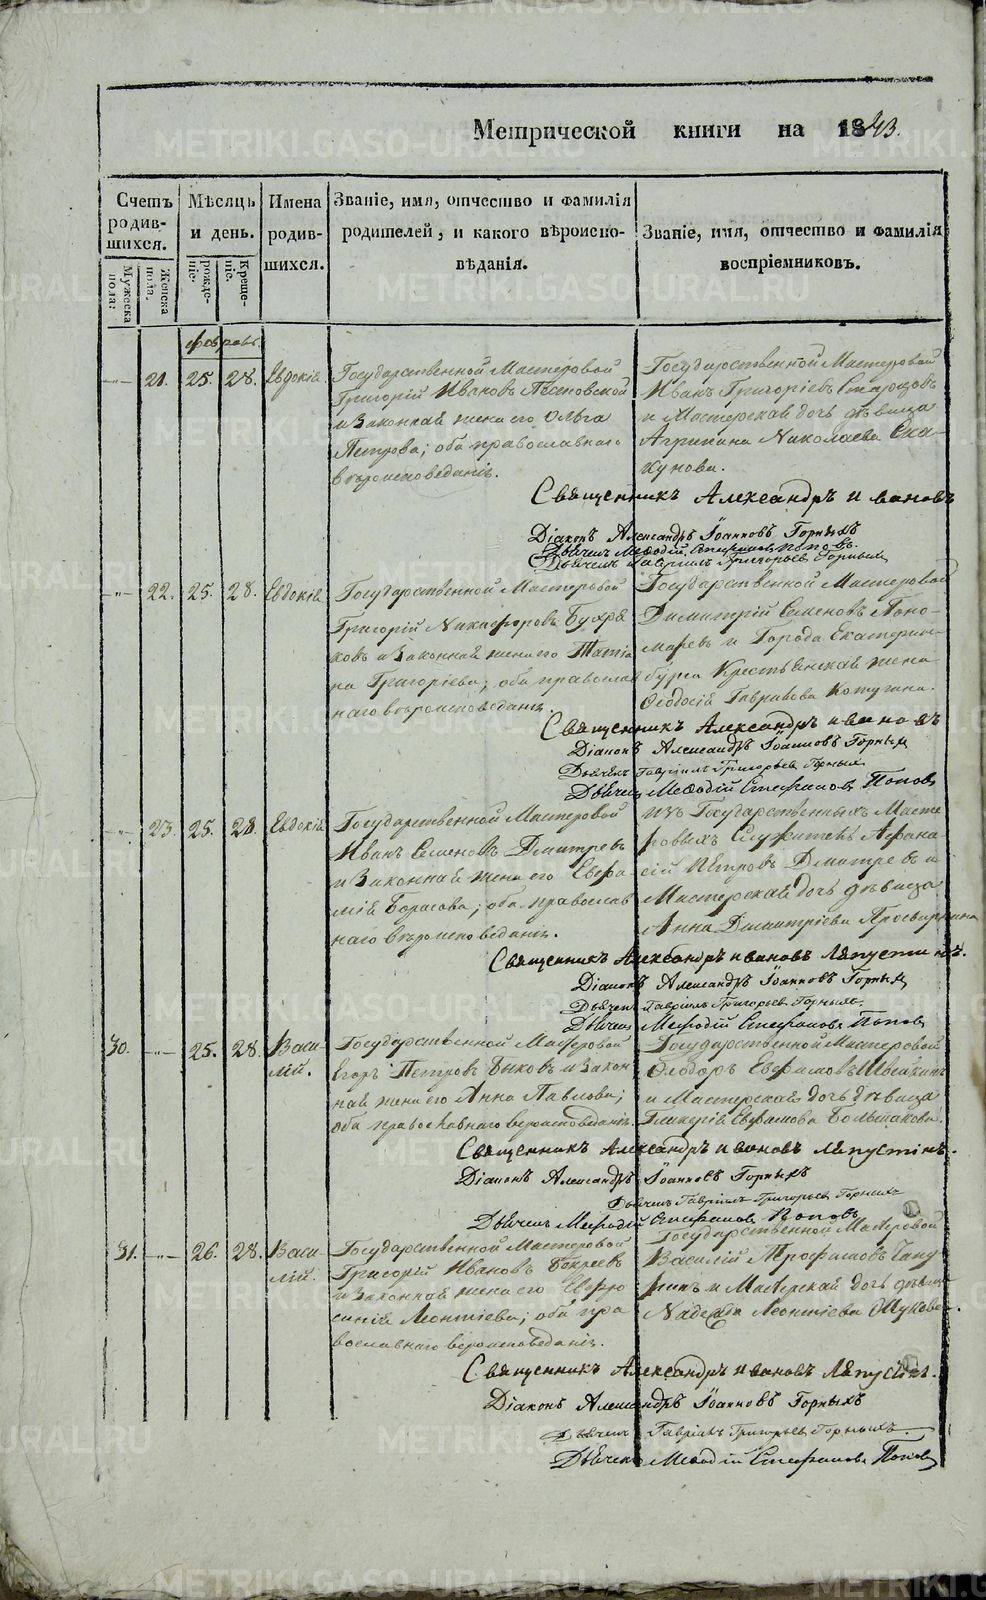 Метрической книги на 1843.
Счетъ родив-шихся.
Мужеска пола.
Женска пола.
Мѣсяцъ и день.
рожде-ніе.
Креще-ніе.
Имена родив-шихся.
Званіе, имя, отчество и фамилія
родителей, и какого вѣроиспо-
вѣданія.
Званіе, имя, отчество и фамилія
воспріемниковъ.
21. 25. 28. Евдокія
Государственной Мастеровой
Григорій Ивановъ
и законная жена его Ольга
Петрова; оба православнаго
вѣроисповеданія.
Государственной Мастеровой
Иванъ Григоріевъ Старцовъ
и Мастерская дочь дѣвица
Агрипина Николаева Ска-
кунова.
Священникъ Александръ Ивановъ
Діаконъ Александръ Іоанновъ Горныхъ
Дьячекъ Мефодій Стефановъ Поповъ.
Дьячекъ Гавріилъ Григорьевъ Горныхъ
22. 25. 28. Евдокія
Государственной Мастеровой
Григорій Никифоровъ Бухря
ковъ и законная жена его Татія
на Григоріева; оба православ
наго вѣроисповеданія.
Государственной Мастеровой
Димитрій Семеновъ Поно-
маревъ и Города Екатерин-
бурга Крестьянская жена
Феодосія Гаврилова Котугина.
Священникъ Александръ Ивановъ
Діаконъ Александръ Іоанновъ Горныхъ
Дьячекъ Гавріилъ Григорьевъ Горныхъ
Дьячекъ Мефодій Стефановъ Поповъ
23. 25. 28. Евдокія
Государственной Мастеровой
Иванъ Семеновъ Дмитревъ
и законная жена его Евфи
мія Борисова; оба православ
наго вѣроисповеданія.
изъ Государственныхъ Масте
ровыхъ Служитель Афана
сій Петровъ Дмитревъ и
Мастерская дочь дѣвица
Анна Димитріева Просвирнина
Священникъ Александръ Ивановъ Ляпустинъ.
Діаконъ Александръ Іоанновъ Горныхъ
Дьячекъ Гавріилъ Григорьевъ Горныхъ.
Дьячекъ Мефодій Стефановъ Поповъ
30. 25. 28. Васи-
лій.
Государственной Мастеровой
Егоръ Петровъ Быковъ и закон
ная жена его Анна Павлова;
оба православнаго вероисповеданія.
Государственной Мастеровой
Феодоръ Евфимовъ
и Мастерская дочь дѣвица
Гликерія Евфимова Большакова.
Священникъ Александръ Ивановъ Ляпустинъ.
Діаконъ Александръ Іоанновъ Горныхъ
Дьячекъ Гавріилъ Григорьевъ Горныхъ
Дьячекъ Мефодій Стефановъ Поповъ
31. 26. 28. Васи-
лій.
Государственной Мастеровой
Григорій Ивановъ
и законная жена его Евфро
синія Леонтіева; оба пра
вославнаго вероисповеданія.
Государственной Мастеровой
Василій Трофимовъ
и Мастерская дочь дѣвица
Надежда Леонтіева
Священникъ Александръ Ивановъ Ляпустинъ.
Діаконъ Александръ Іоанновъ Горныхъ
Дьячекъ Гавріилъ Григорьевъ Горныхъ.
Дьячекъ Мефодій Стефановъ Поповъ
METRIKI.GASO-URAL.RU